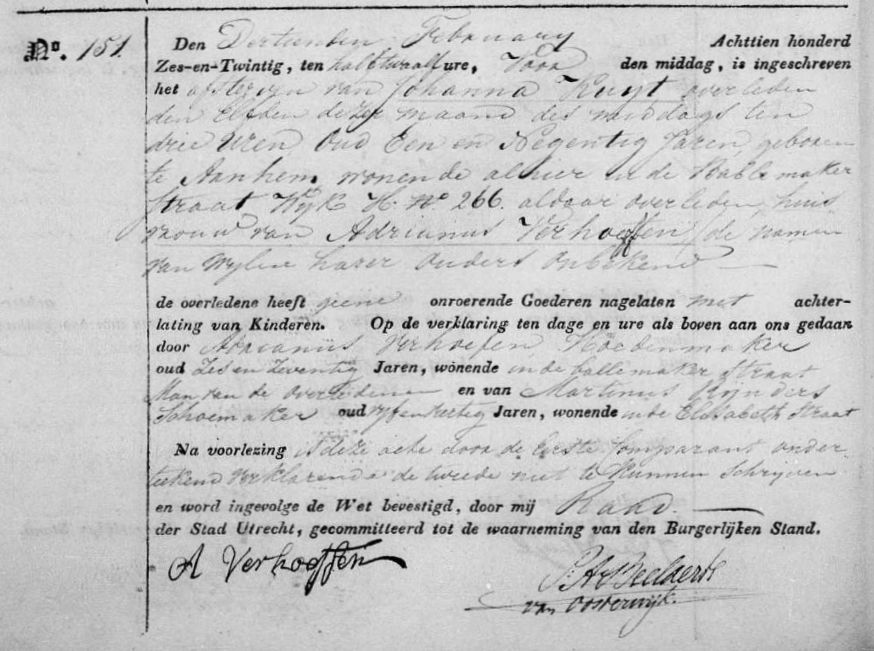 No. 151.
Den Dertienden February Achttien honderd
Zes-en-Twintig, ten halftwaalf ure, Voor den middag, is ingeschreven
het afsterven van Johanna Kuyt overleden
den Elfden dezer maand des middags ten
drie Uren Oud Een en Negentig Jaren, geboren
te Arnhem wonende alhier in de Ballemaker
straat Wyk H. No 266. aldaar overleden, huis
vrouw van Adrianus Verhoeffen (de namen
van wylen harer Ouders Onbekend
de overledene heeft geene onroerende Goederen nagelaten met achter-
lating van Kinderen. Op de verklaring ten dage en ure als boven aan ons gedaan
door Adrianus Verhoefen Hoedenmaker
oud Zes en Zeventig Jaren, wonende in de ballemaker straat
Man van de Overledene en van Martinus Rynders
Schoemaker oud vyf en veertig Jaren, wonende in de Elisabeth Straat
Na voorlezing is deze acte door de Eerste Comparant onder
teekend verklarende de tweede niet te kunnen Schryven
en word ingevolge de Wet bevestigd, door mij Raad.
der Stad Utrecht, gecommitteerd tot de waarneming van den Burgerlijken Stand.
A Verhoeffen
Beelaerts
van Oosterwijk.